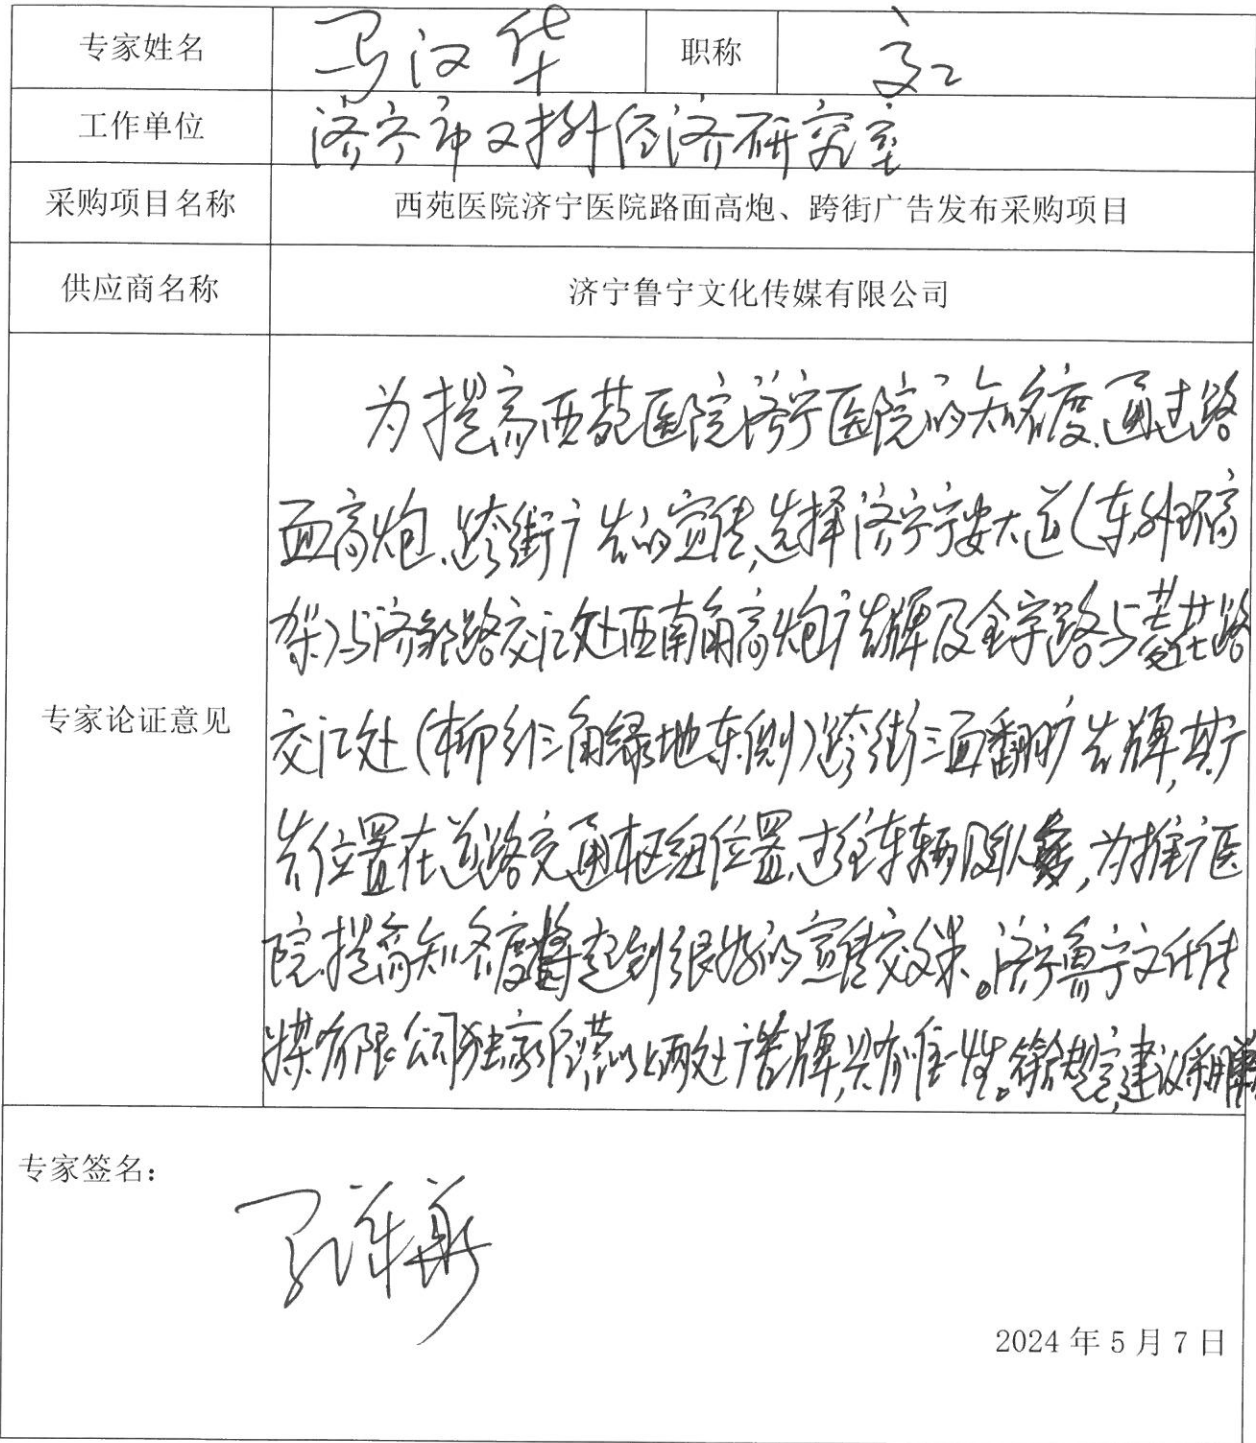 专家姓名 马汉华 职称 高工
工作单位 济宁市对外经济研究室
采购项目名称 西苑医院济宁医院路面高炮、跨街广告发布采购项目
供应商名称 济宁鲁宁文化传媒有限公司
为提高西苑医院济宁医院的知名度,通过路
面高炮、跨街广告的宣传,选择济宁宁安大道(东外环高
架)与济邹路交汇处西南角高炮广告牌及金宇路与路
专家论证意见
交汇处(柳行三角绿地东侧)跨街三面翻广告牌,其广
告位置在道路交通枢纽位置,过往车辆及人多,为推广医
院,提高知名度将起到很好的宣传效果。济宁鲁宁文化传
媒有限公司独家经营以上两处广告牌,具有唯一性。符合规定,建议采购
专家签名:
2024年5月7日